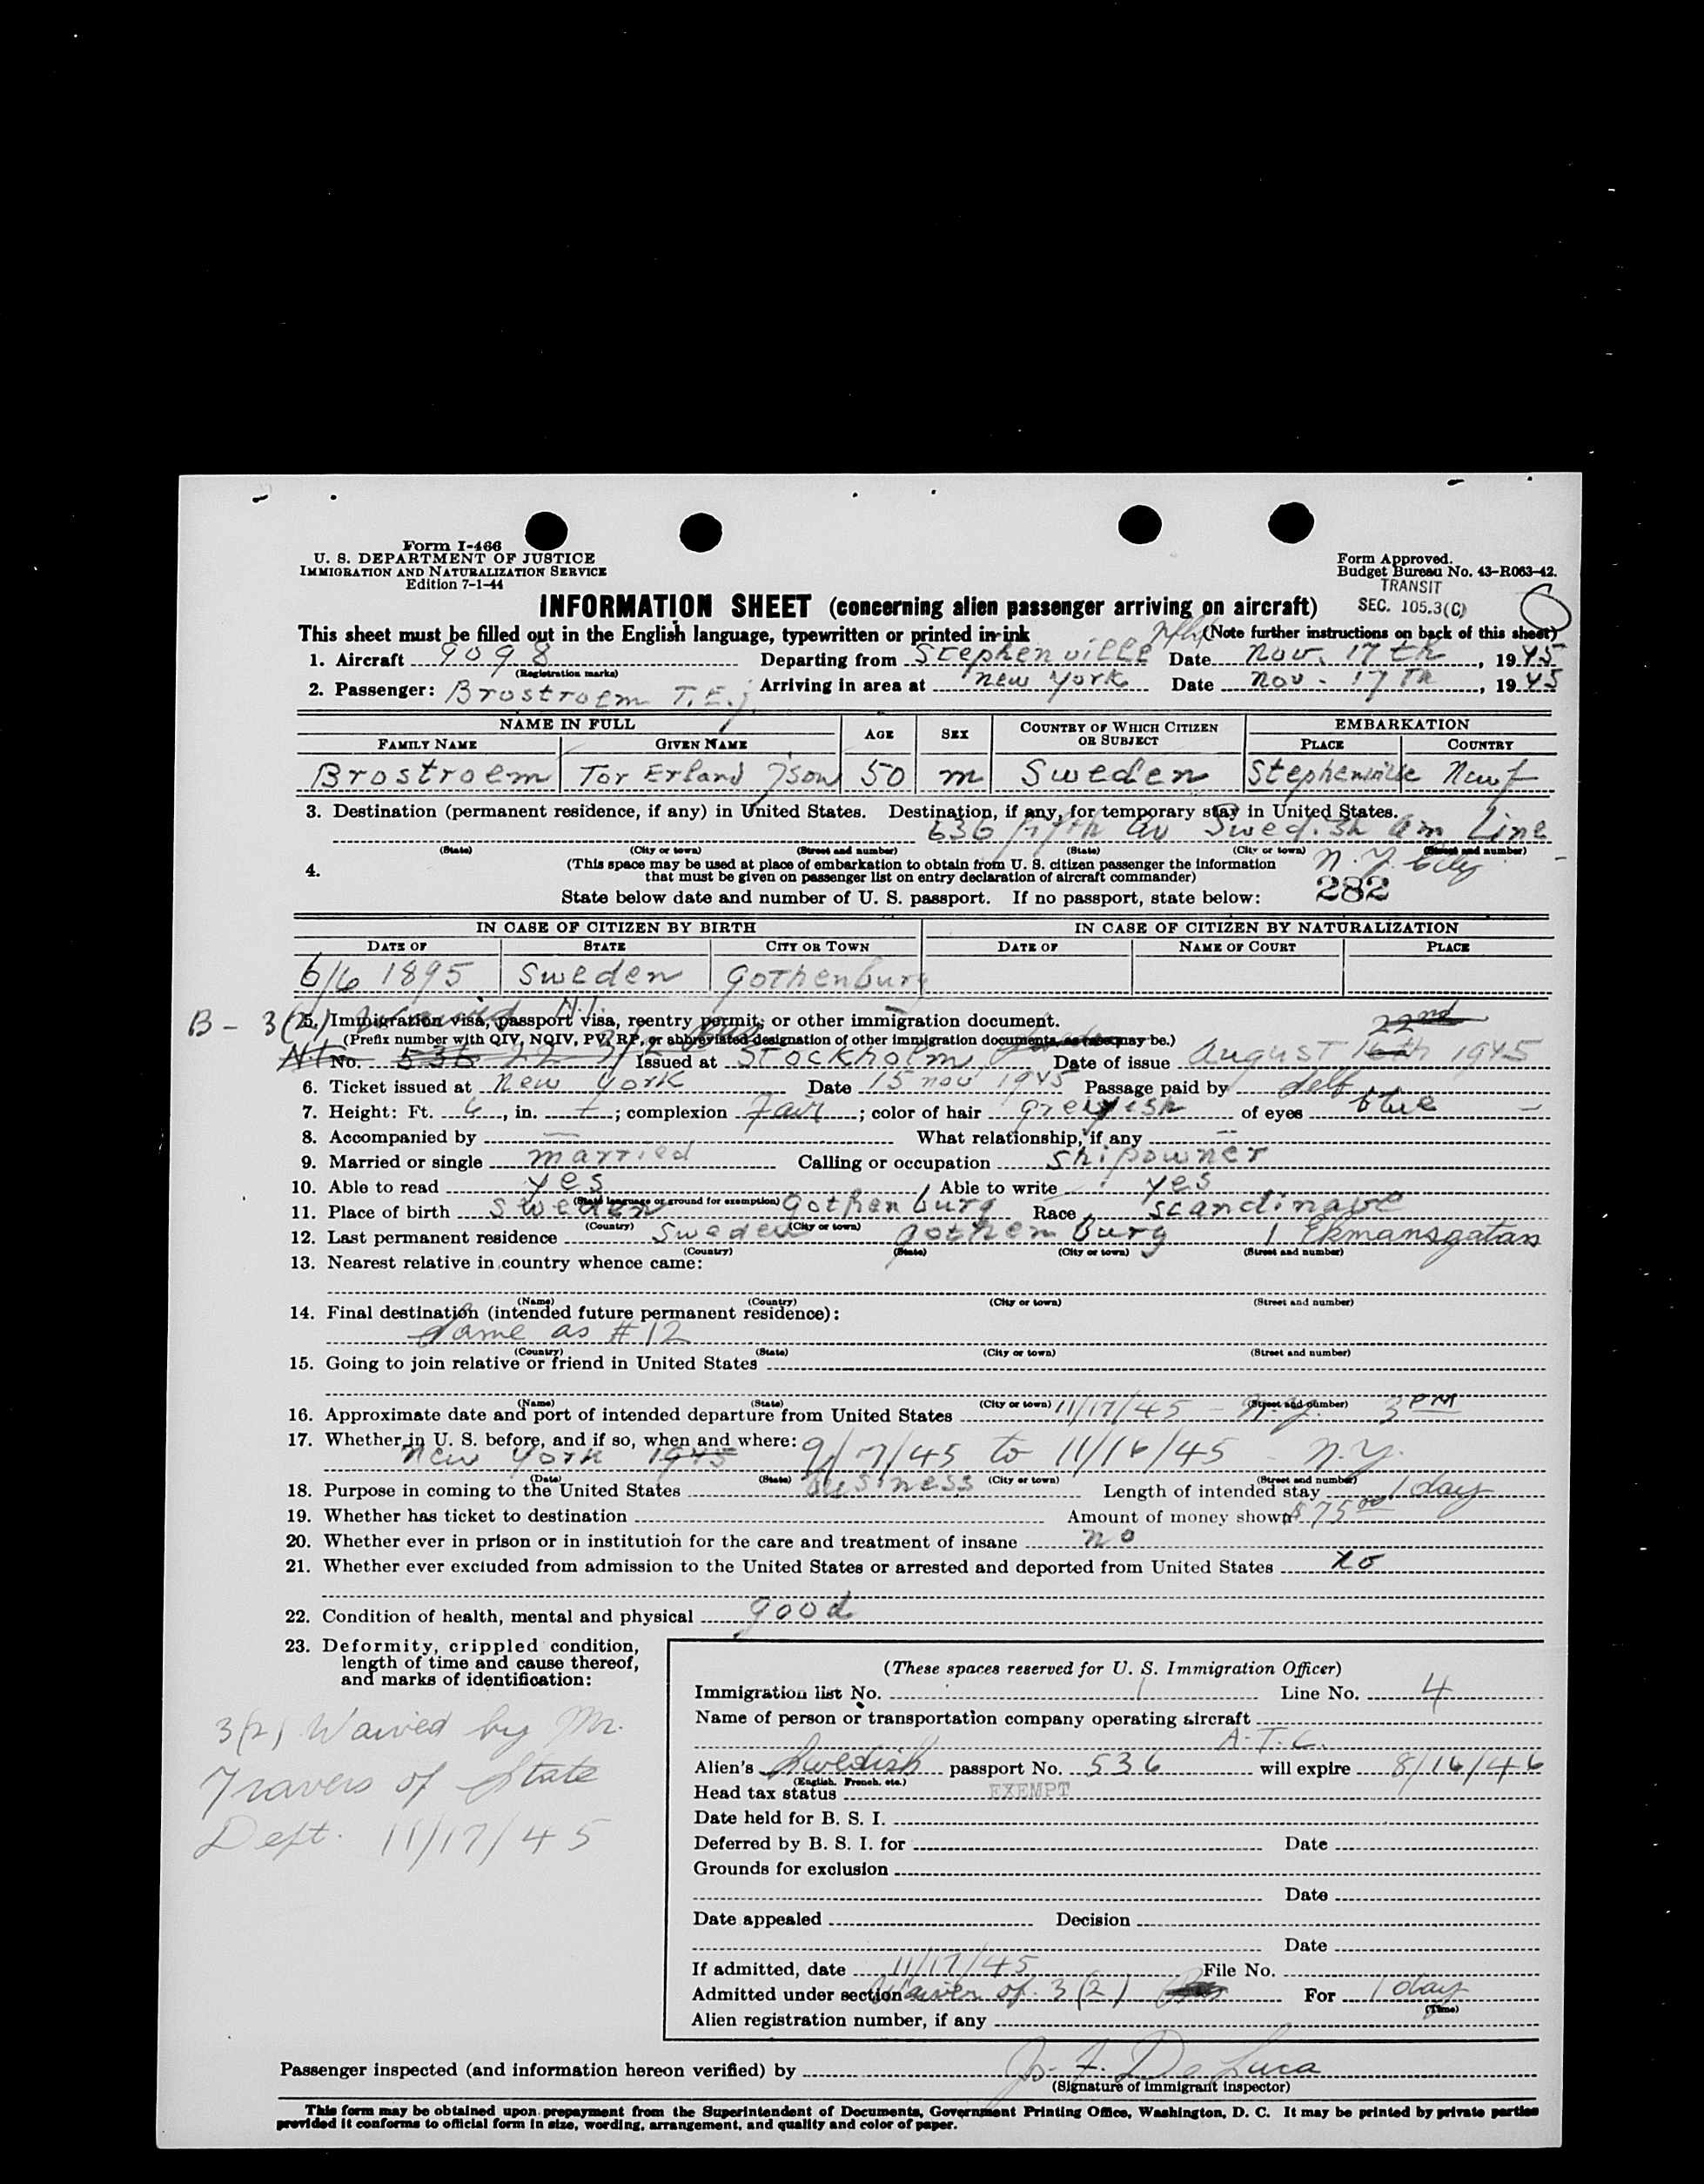 Form I-466
U. S. DEPARTMENT OF JUSTICE
IMMIGRATION AND NATURALIZATION SERVICE
Edition 7-1-44
Form Approved.
Budget Bureau No. 43-R063-42.
TRANSIT
SEC. 105.3(C)
INFORMATION SHEET (concerning alien passenger arriving on aircraft)
This sheet must be filled out in the English language, typewritten or printed in ink (Note further instructions on back of this sheet)
1. Aircraft 9098 Departing from Stephenville Nfld Date Nov. 17th, 1945
(Registration marks)
2. Passenger: Brostroem T.E.J. Arriving in area at New York Date Nov. 17Th, 1945
NAME IN FULL AGE SEX COUNTRY OF WHICH CITIZEN OR SUBJECT EMBARKATION
FAMILY NAME GIVEN NAME PLACE COUNTRY
Brostroem Tor Erland Json 50 m Sweden Stephenville Newf
3. Destination (permanent residence, if any) in United States. Destination, if any, for temporary stay in United States.
636 fifth av Swedish am Line
(State) (City or town) (Street and number) (State) (City or town) (Street and number)
N.Y. City
4. (This space may be used at place of embarkation to obtain from U. S. citizen passenger the information
that must be given on passenger list on entry declaration of aircraft commander)
State below date and number of U. S. passport. If no passport, state below: 282
IN CASE OF CITIZEN BY BIRTH IN CASE OF CITIZEN BY NATURALIZATION
DATE OF STATE CITY OR TOWN DATE OF NAME OF COURT PLACE
6/6 1895 Sweden Gothenburg
B - 3(2) Waived
5. Immigration visa, passport visa, reentry permit, or other immigration document. 22nd
(Prefix number with QIV, NQIV, PV, RP, or abbreviated designation of other immigration documents, as case may be.)
No. 536 Issued at Stockholm Date of issue August 16th 1945
6. Ticket issued at New York Date 15 nov 1945 Passage paid by Self
7. Height: Ft. 6, in. -; complexion Fair; color of hair greyish of eyes blue
8. Accompanied by — What relationship, if any —
9. Married or single married Calling or occupation shipowner
10. Able to read yes Able to write yes
(State language or ground for exemption)
11. Place of birth Sweden Gothenburg Race scandinave
(Country) (City or town)
12. Last permanent residence Sweden Gothenburg 1 Ekmansgatan
(Country) (State) (City or town) (Street and number)
13. Nearest relative in country whence came:
(Name) (Country) (City or town) (Street and number)
14. Final destination (intended future permanent residence):
Same as # 12
(Country) (State) (City or town) (Street and number)
15. Going to join relative or friend in United States
(Name) (State) (City or town) (Street and number)
16. Approximate date and port of intended departure from United States 11/17/45 - N.Y. 3 PM
17. Whether in U. S. before, and if so, when and where: 9/7/45 to 11/16/45 N.Y.
New York 1945
(Date) (State) (City or town) (Street and number)
18. Purpose in coming to the United States business Length of intended stay 1 day
19. Whether has ticket to destination Amount of money shown $75.00
20. Whether ever in prison or in institution for the care and treatment of insane no
21. Whether ever excluded from admission to the United States or arrested and deported from United States no
22. Condition of health, mental and physical good
23. Deformity, crippled condition,
length of time and cause thereof,
and marks of identification:
3(2) Waived by Mr.
Travers of State
Dept. 11/17/45
(These spaces reserved for U. S. Immigration Officer)
Immigration list No. 1 Line No. 4
Name of person or transportation company operating aircraft
A.T.C.
Alien's Swedish passport No. 536 will expire 8/16/46
(English, French, etc.)
Head tax status EXEMPT
Date held for B. S. I.
Deferred by B. S. I. for Date
Grounds for exclusion
Date
Date appealed Decision
Date
If admitted, date 11/17/45 File No.
Admitted under section Waiver of 3(2) For 1 day
(Time)
Alien registration number, if any
Passenger inspected (and information hereon verified) by F. De Luca
(Signature of immigrant inspector)
This form may be obtained upon prepayment from the Superintendent of Documents, Government Printing Office, Washington, D. C. It may be printed by private parties
provided it conforms to official form in size, wording, arrangement, and quality and color of paper.